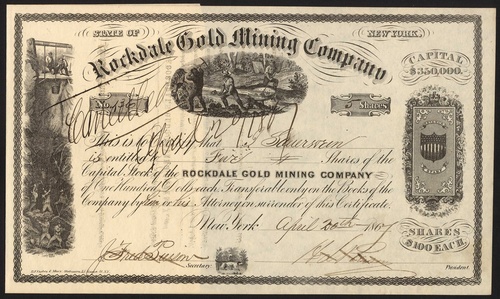 STATE OF NEW YORK.
Rockdale Gold Mining Company
CAPITAL
$350,000.
No.
5 Shares
This is to Certify that
is entitled to Five Shares of the
Capital Stock of the ROCKDALE GOLD MINING COMPANY
of One Hundred Dolls. each. Transferable only on the Books of the
Company by him or his Attorney on surrender of this Certificate.
New York April 20th 1867
SHARES
$100 EACH.
Secretary
President